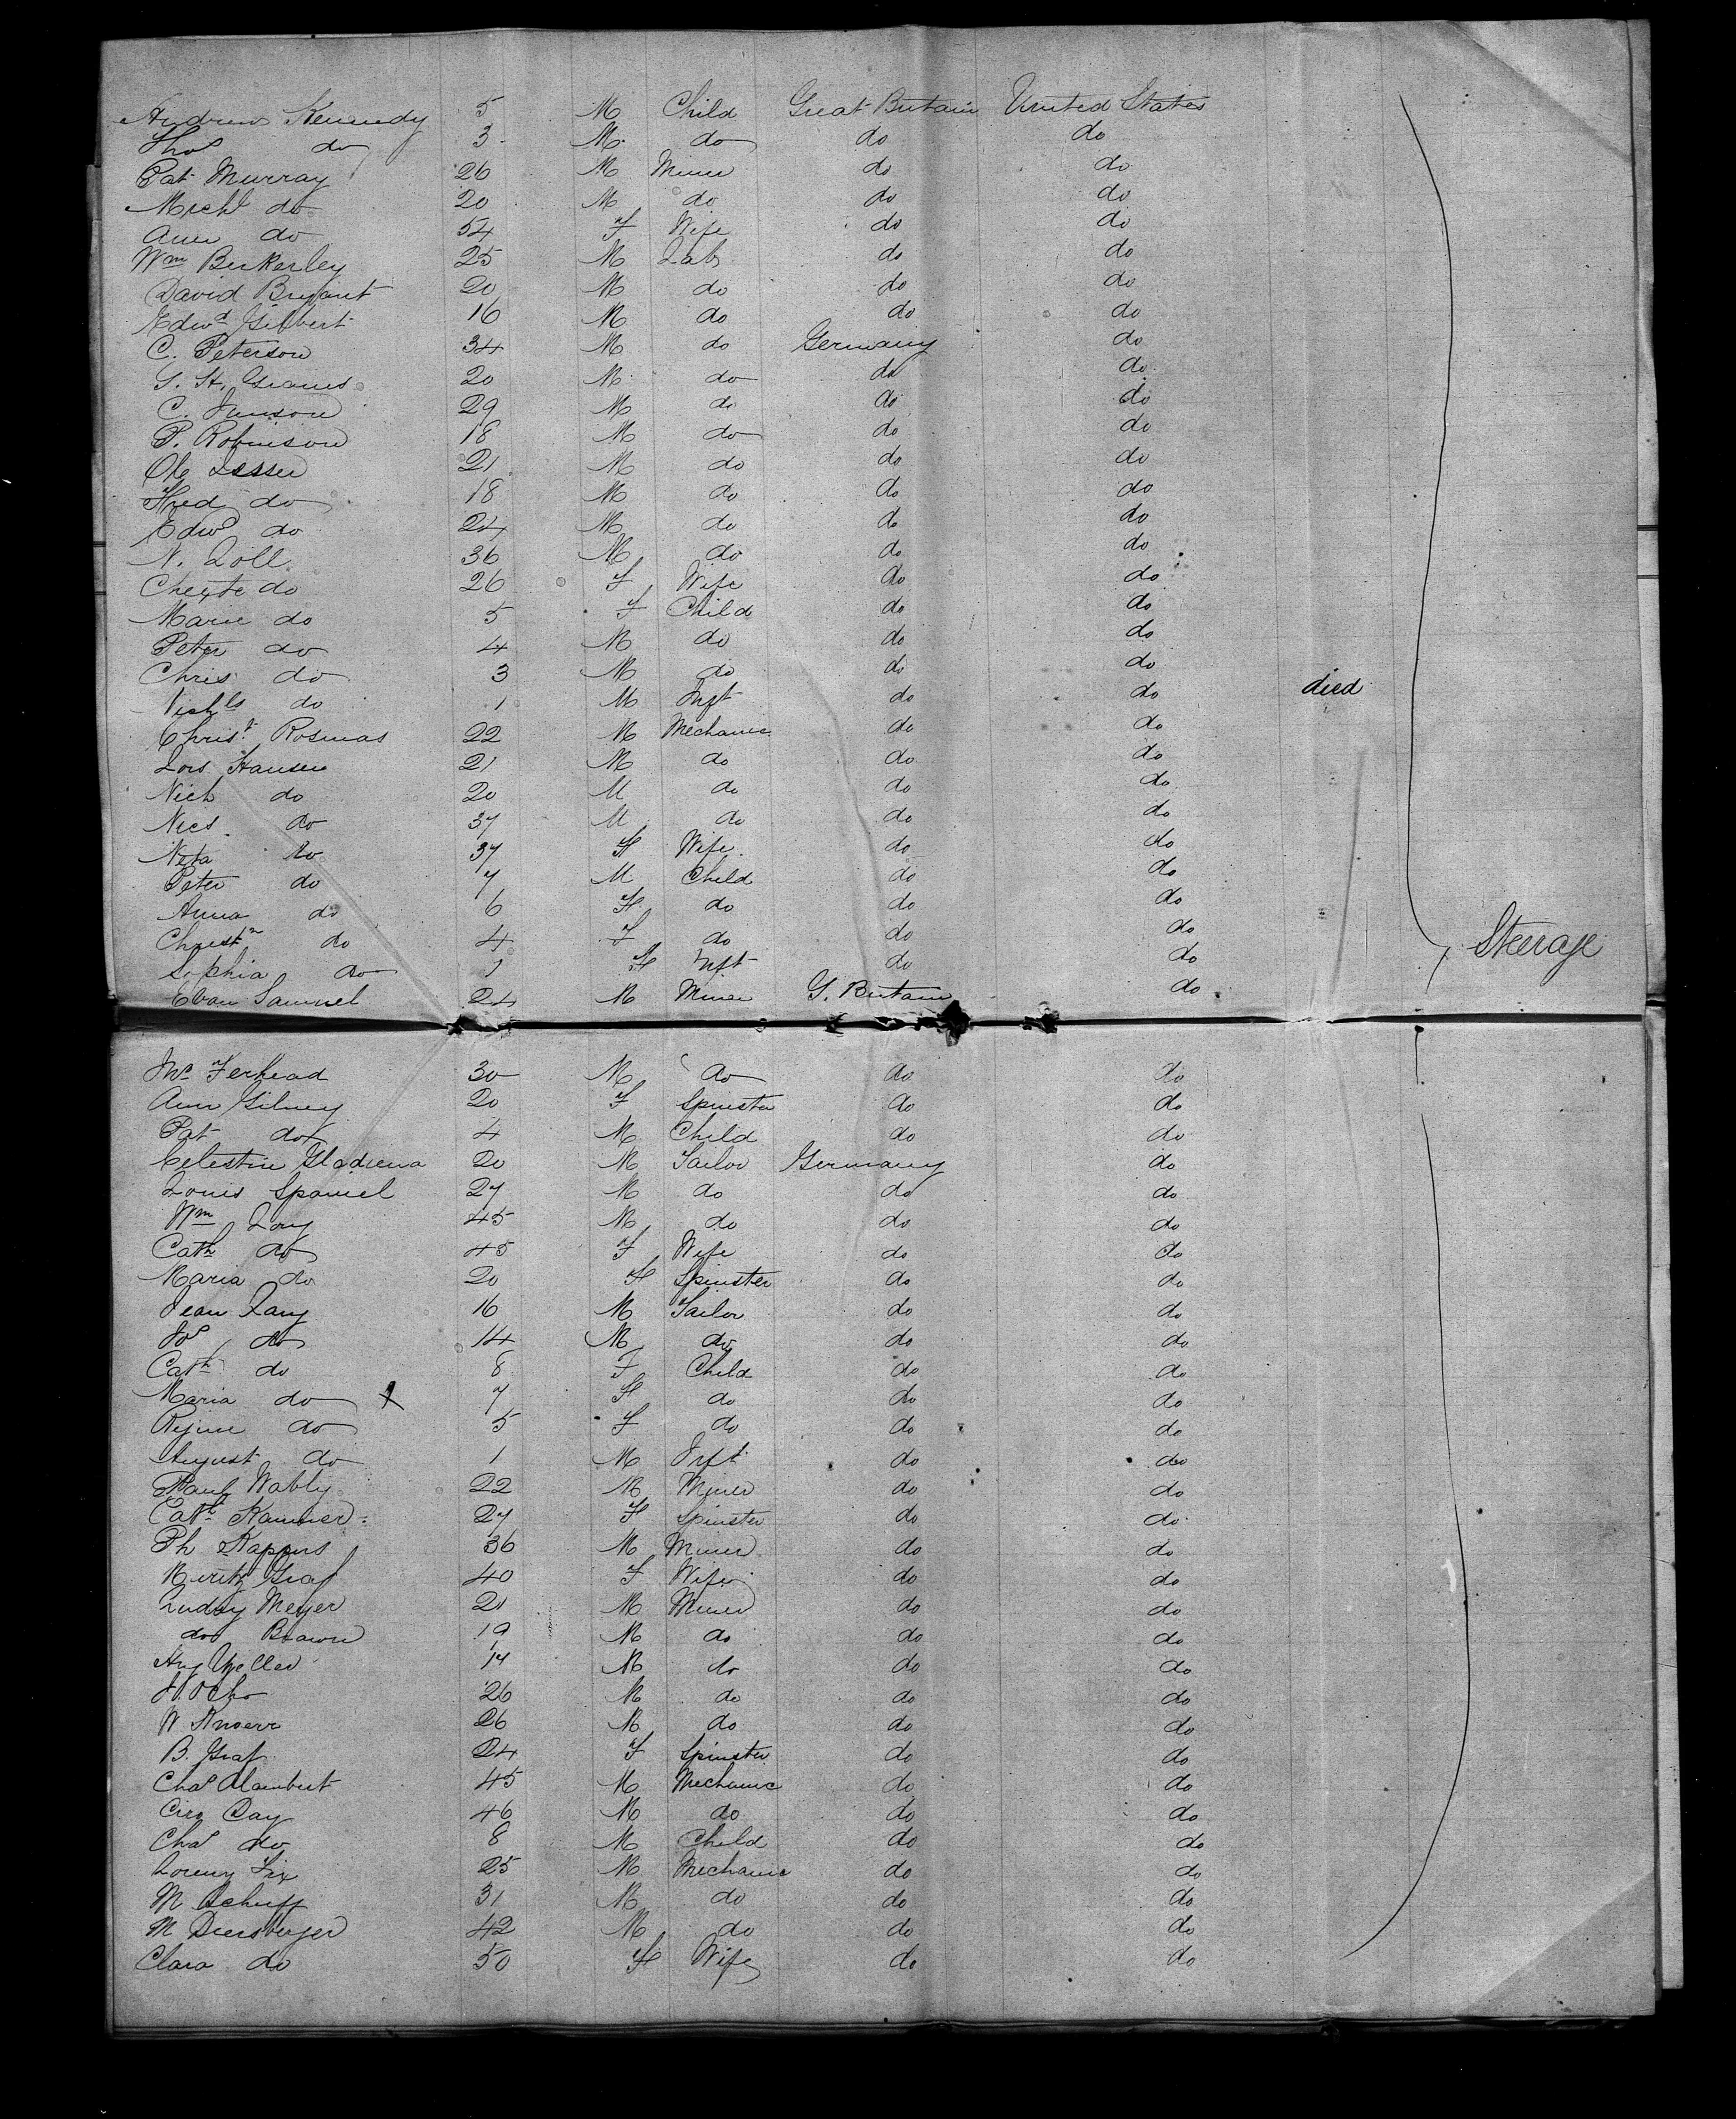 Andrew Kennedy 5 M Child Great Britain United States
Thos do 3 M do do do
Pat Murray 26 M Miner do do
Michl do 20 M do do do
Ann do 54 F Wife do do
Wm Berkerley 25 M Lab do do
David Bryant 20 M do do do
Edwd Gilbert 16 M do do do
C. Peterson 34 M do Germany do
20 M do do do
C. Junson 29 M do do do
P. Robinson 18 M do do do
Ole Jessen 21 M do do do
Fred do 18 M do do do
Edwd do 24 M do do do
N. Zoll 36 M do do do
do 26 F Wife do do
Marie do 5 F Child do do
Peter do 4 M do do do
Chris do 3 M do do do
Nichls do 1 M Inft do do died
Christ. Rosmas 22 M Mechanic do do
Lors Hansen 21 M do do do
Nich do 20 M do do do
Nics do 37 M do do do
Neta do 37 F Wife do do
Peter do 7 M Child do do
Anna do 6 F do do do
Christn do 4 F do do do Steerage
Sophia do 1 F Inft do do
Evan Samuel 24 M Miner G. Britain do
Jno Ferhead 30 M do do do
Ann Gilney 20 F Spinster do do
Pat do 4 M Child do do
Celestine 20 M Tailor Germany do
Louis Spaniel 27 M do do do
Wm Lang 45 M do do do
Cath do 45 F Wife do do
Maria do 20 F Spinster do do
Jean Lang 16 M Tailor do do
Jos do 14 M do do do
Cath do 8 F Child do do
Maria do 7 F do do do
Rejine do 5 F do do do
August do 1 M Inft do do
Wably 22 M Miner do do
Cath Kammer 27 F Spinster do do
Ph Kappus 36 M Miner do do
Graf 40 F Wife do do
Ludwig Meyer 21 M Miner do do
do Brawn 19 M do do do
Aug Weller 17 M do do do
26 M do do do
W Knoerr 26 M do do do
B. Graf 24 F Spinster do do
Chas Alambert 45 M Mechanic do do
Day 46 M do do do
Chas do 8 M Child do do
Lorenz Fix 25 M Mechanic do do
M Schuff 31 M do do do
M Diersberger 42 M do do do
Clara do 50 F Wife do do